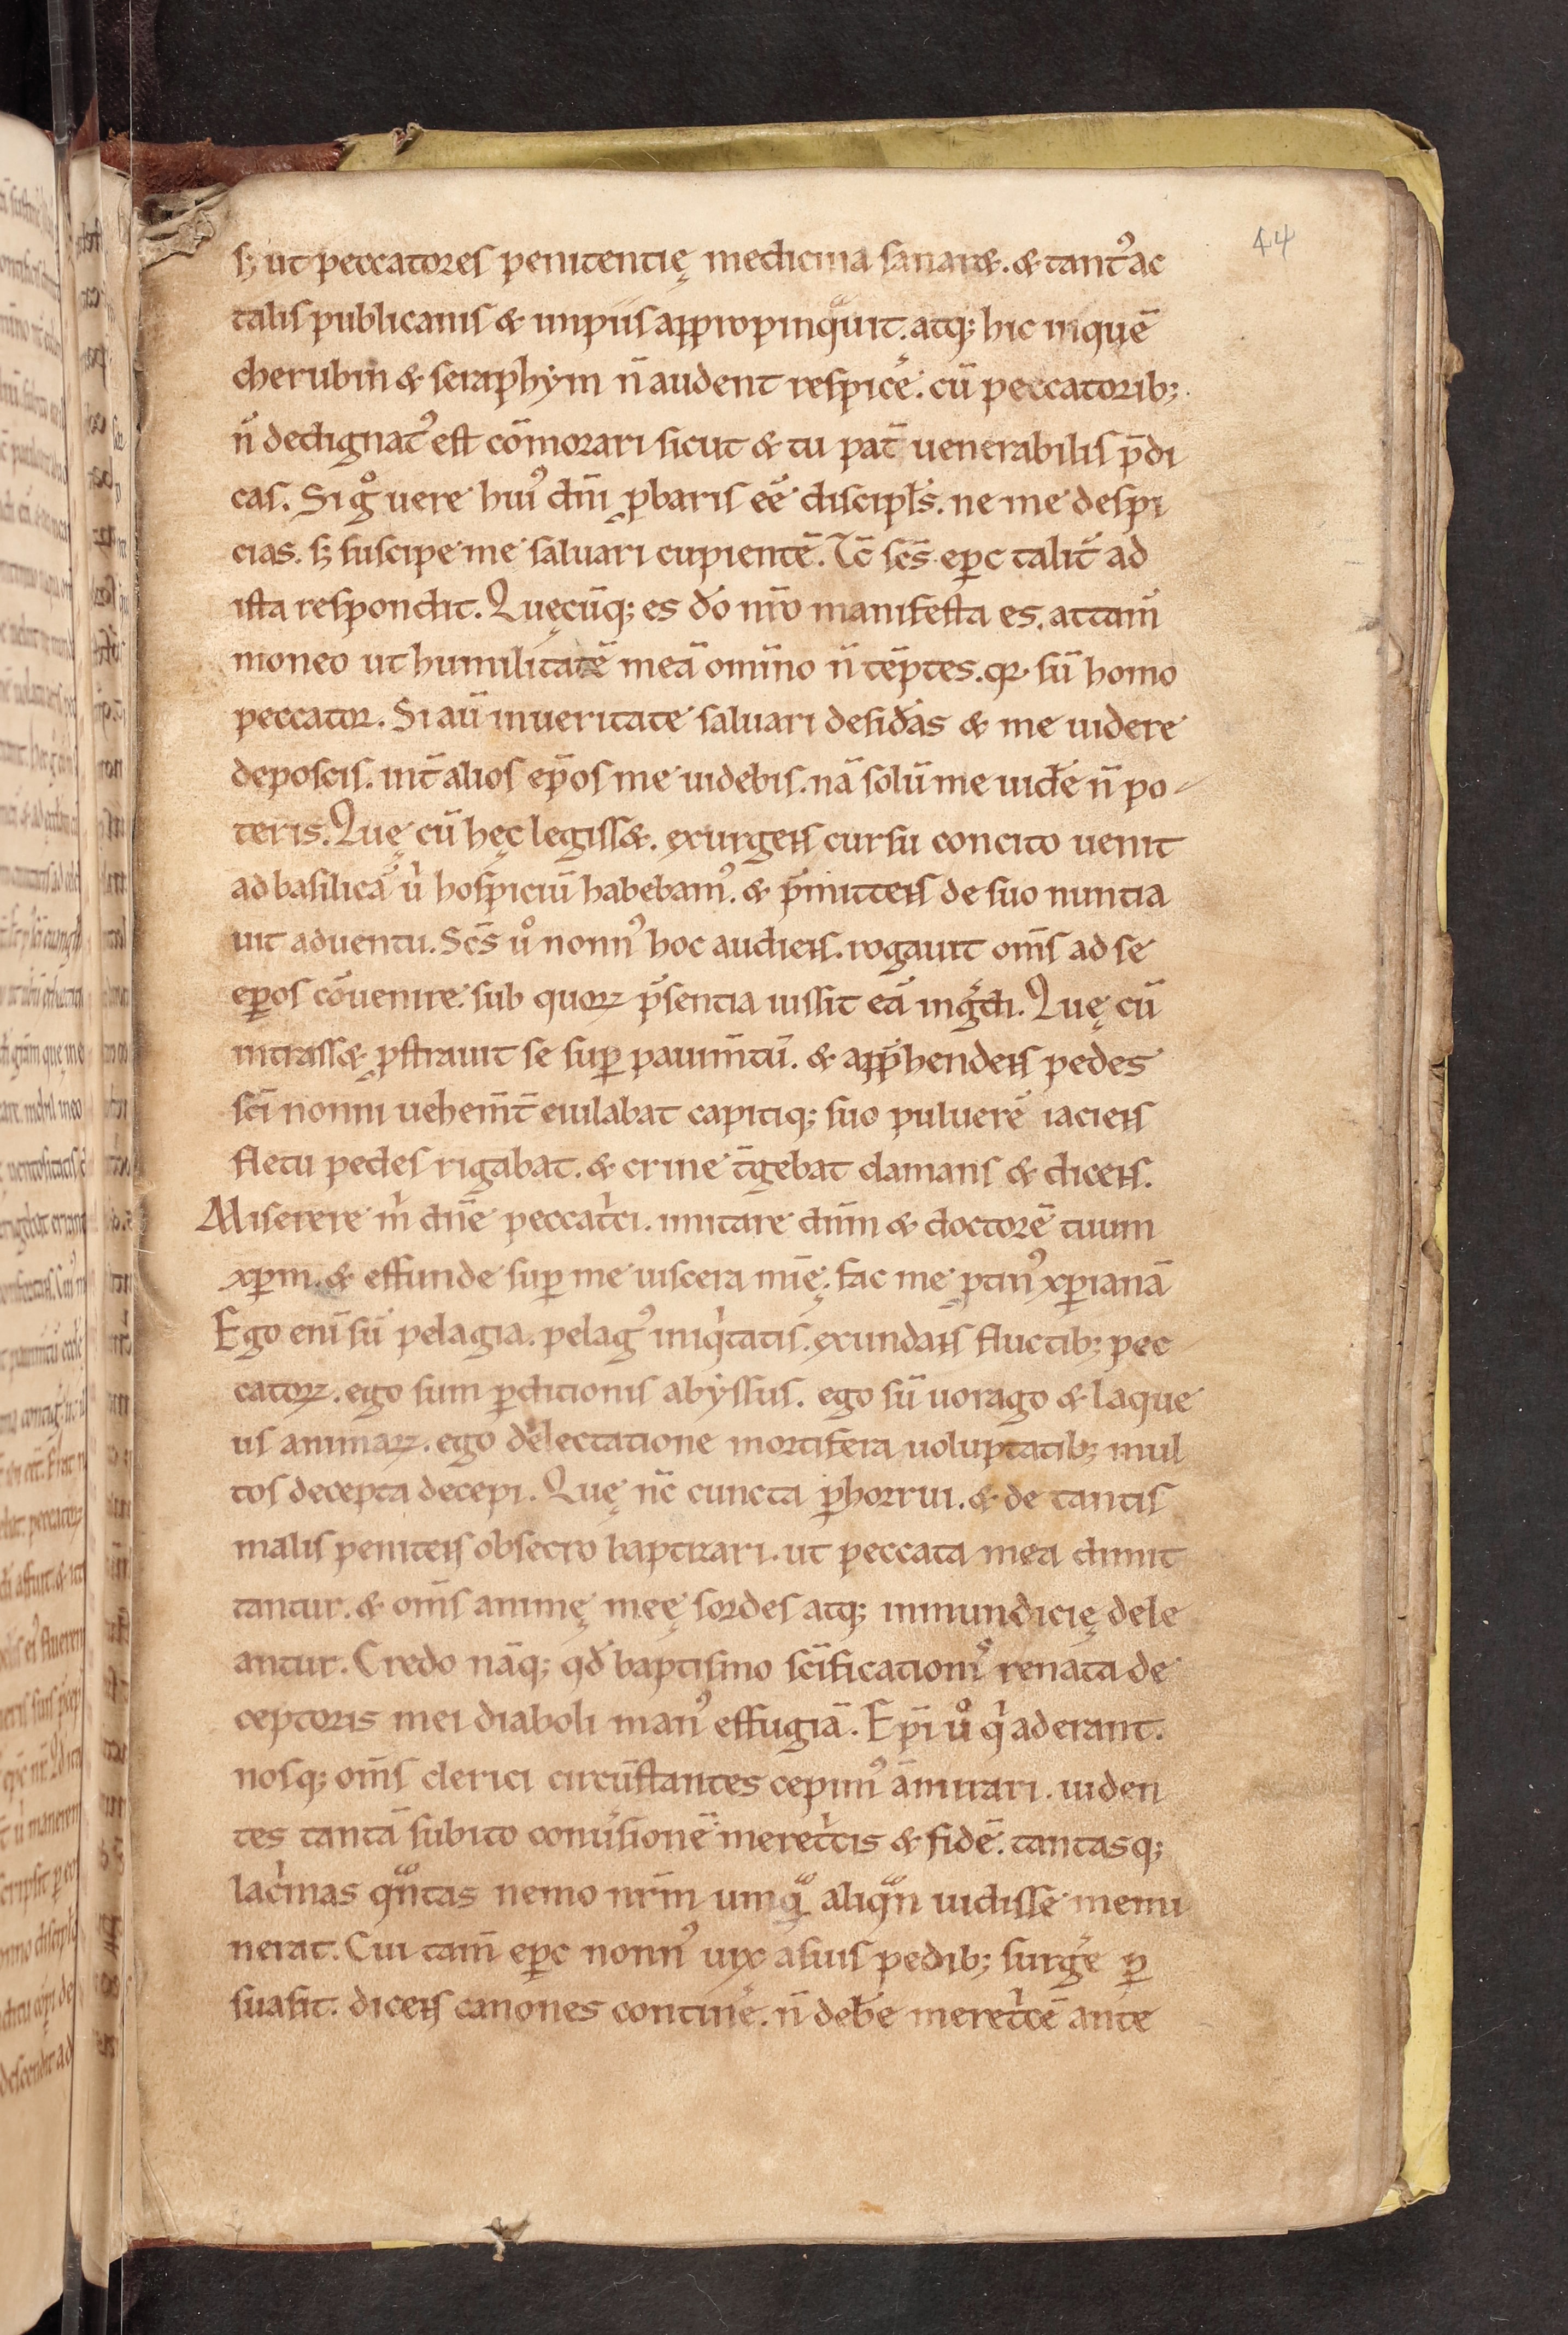 44
s; ut peccatores penitentię medicina sanar&. & tantꝰ ac
talis publicanis & impiis appropinquit. atq; hic in quē
cherubin & seraphym n̄ audent respicͤe. cū peccatorib;
n̄ dedignatꝰ est cōmorari sicut & tu pat̄ uenerabilis p̄di
cas. Si gͦ uere huiꝰ dn̄i ꝓbaris eē discipl̄s. ne me despi
cias. s; suscipe me saluari cupientē. Tc̄ sc̄s ep̄c talit̄ ad
ista respondit. Quęcūq; es dō nr̄o manifesta es. attam̄
moneo ut humilitatē meā omīno n̄ tēptes. qꝛ sū homo
peccator. Si aū in ueritate saluari desid̄as & me uidere
deposcis. int̄ alios ep̄os me uidebis. nā solū me uid̄e n̄ po-
teris. Quę cū hęc legiss&. exurgens cursu concito uenit
ad basilicā uⁱ hospiciū habebamꝰ. & p̄mittens de suo nuntia
uit aduentu. Sc̄s uͦ nonnꝰ hoc audiens. rogauit om̄s ad se
ep̄os cōuenire. sub quoꝝ p̄sentia iussit eā ing̃di. Quę cū
intrass& ꝓstrauit se suꝑ pauim̄tū. & app̄hendens pedes
sc̄i nonni uehem̄t̄ eiulabat capitiq; suo puluerē iaciens
fletu pedes rigabat. & crine t̄gebat clamans & dicens.
Miserere mⁱ dn̄e peccatⁱci. imitare dn̄m & doctorē tuum
xp̄m. & effunde suꝑ me uiscera mīę. fac me ꝓtinꝰ xp̄ianā
Ego eni sū pelagia. pelagꝰ iniqⁱtatis. exundans fluctib; pec
catoꝝ. ego sum ꝑditionis abyssus. ego sū uorago & laque
us animaꝝ. ego delectatione mortifera uoluptatib; mul
tos decepta decepi. Quę nc̄ cuncta ꝑhorrui. & de tantis
malis penitens obsecro baptizari. ut peccata mea dimit
tantur. & om̄s animę meę sordes atq; inmundicię dele
antur. Credo nāq; qd̄ baptismo sc̄ificationꝰ renata de
ceptoris mei diaboli manꝰ effugiā. Ep̄i uͦ qⁱ aderant.
nosq; om̄s clerici circūstantes cepimꝰ āmirari. uiden
tes tantā subito conu̓sionē meretⁱcis & fidē. tantasq;
lacⁱmas qᵃntas nemo nr̄m umqᵃ aliqᵃn uidisse memi
nerat. Cui tam̄ ep̄c nonnꝰ uix a suis pedib; surg̓e ꝑ
suasit. dicens canones contin̓e. n̄ deb̄e meretⁱcē ante